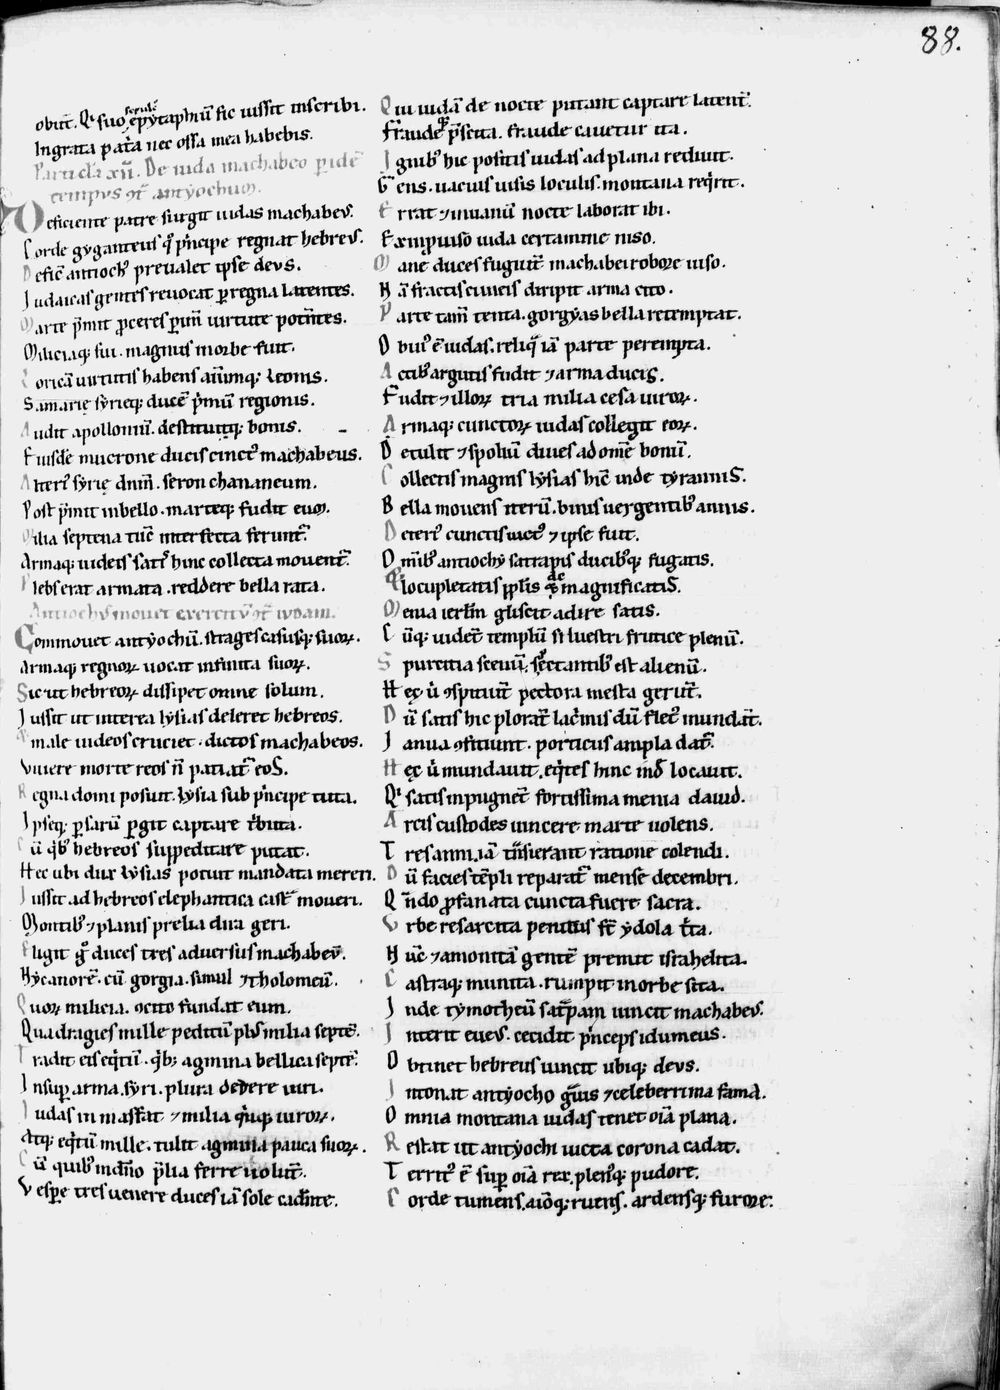 88.
obiit̃. Qͥ suo sepulc̃ epẏtaphiũ sic iussit inscribi.
Ingrata pat͛a nec ossa mea habebis.
Particl̃a xii. De iuda machabeo p̱ idẽ
tempus ↄt͛ antẏochum.
Deficiente patre surgit iudas machabeꝰ.
Corde gẏganteus qͦ pͥncipe regnat hebreꝰ.
Defic̃ antiochꝰ preualet ipse deus.
Iudaicas gentes reuocat p̱ regna latentes.
Marte p̃mit ꝓceres p̱im̃ uirtute potñtes.
Miliciaqꝫ sui. magnus in orbe fuit.
Loricã uirtutis habens aĩumqꝫ leonis.
Samarię sẏrieqꝫ ducẽ pͥmũ regionis.
Audit apolloniũ. destituitqꝫ bonis.
Eiusdẽ mucrone ducis cinctꝰ machabeus.
Alterꝰ sẏrię dnm̃. seron chananeum.
Post p̃mit in bello. marteqꝫ fudit eum.
Milia septena tũc interfecta ferunt̃.
Armaqꝫ iudeis satꝭ hinc collecta mouent̃.
Plebs erat armata. reddere bella rata.
Antiochꝰ mouet exercitũ ↄt͛ iudam.
Commouet antẏochũ. strages casusqꝫ suoꝝ.
Armaqꝫ regnoꝝ uocat infinita suoꝝ.
Sic ut hebreoꝝ dissipet omne solum.
Iussit ut interea lẏsias deleret hebreos.
male iudeos cruciet. dictos machabeos.
Viuere morte reos ñ patiat̃ eos.
Regna domi posuit. lẏsia sub pͥncipe tuta.
Ipseqꝫ p̱sarũ p̱git captare tͥbuta.
Cũ qͥbꝰ hebreos suppeditare putat.
Hec ubi dux lẏsias potuit mandata mereri.
Iussit ad hebreos elephantica castͣ moueri.
Montibꝰ ⁊ planis prelia dira geri.
Eligit gͦ duces tres aduersus machabeũ.
Nẏcanorẽ. cũ gorgia. simul ⁊ tholomeũ.
Quoꝝ milicia. ↄcito fundat eum.
Quadragies mille peditũ plꝰ milia septẽ.
Tradit eis eqͥtũ. qͥbꝫ agmina bellica septẽ.
Insup̱ arma. sẏri. plura dedere uiri.
Iudas in massat ⁊ milia qͥnqꝫ uiroꝝ.
Atqꝫ eqͥtũ mille. tulit agmina pauca suoꝝ.
Cũ quibꝰ indño p̃lia ferre uoluit̃.
Vesp̱e tres uenere duces iã sole cadñte.
Qui iudã de nocte putant captare latent̃.
Fraude p̃scita. fraude cauetur ita.
Ignibꝰ hic positis iudas ad plana rediuit.
Gens. uacuis uisis loculis. montana reqͥrit.
Errat ⁊ in uanũ nocte laborat ibi.
Ex inpuiso iuda certamine niso.
Mane duces fugiũt. machabei robore uiso.
Nã fractis cuneis diripit arma cito.
Parte tam̃ tenta. gorgẏas bella retemptat.
Obuiꝰ ẽ iudas. reliqͣ iã parte perempta.
Actibꝰ argutis fudit ⁊ arma ducis.
Fudit ⁊ illoꝝ tria milia cesa uiroꝝ.
Armaqꝫ cunctoꝝ iudas collegit eoꝝ.
Detulit ⁊ spoliũ diues ad omẽ bonũ.
Collectis magnis lẏsias hĩc inde tẏrannis.
Bella mouens iterũ. binis uergentibꝰ annis.
Deterꝰ cunctis uictꝰ ⁊ ipse fuit.
Om̃ibꝰ antiochẏ satrapis ducibꝰqꝫ fugatis.
locupletatis pp̱lis de magnificatis.
Menia ierl̃m gliscit adire satis.
Cũqꝫ uideñt templũ siluestri frutice plenũ.
Spurcitia sceuũ, spectantibꝰ est alienũ.
Hęc u̇ ↄspiciũt pectora mesta gerũt.
Dũ satis hic plorat̃ lacͥmis dũ fletꝰ mundat̃.
Ianua ↄficiunt. porticus ampla dat̃.
Hęc u̇ mundauit. eqͥtes hinc inde locauit.
Qͥ satis inpugnet̃ fortissima menia dauid.
Arcis custodes uincere marte uolens.
Tres anni. iã tñsierant ratione colendi.
Dũ facies tẽpli reparat̃ mense decembri.
Qñdo ꝓfanata cuncta fuere sacra.
Vrbe resarcita penitus st̃ ẏdola t̃ta.
Hũc ⁊ amonitã gentẽ premit israhelita.
Castraqꝫ munita. rumpit in orbe sita.
Inde tẏmotheũ sat͛pam uincit machabeꝰ.
Interit eueꝰ. cecidit pͥnceps idumeus.
Obtinet hebreus uincit ubiqꝫ deus.
Intonat antẏocho gͣuis ⁊ celeberrima fama.
Omnia montana iudas tenet oĩa plana.
Restat ut antẏochi uicta corona cadat.
Territꝰ ẽ sup̱ oĩa rex. plenꝰqꝫ pudore.
Corde tumens. aĩoqꝫ ruens. ardensqꝫ furore.